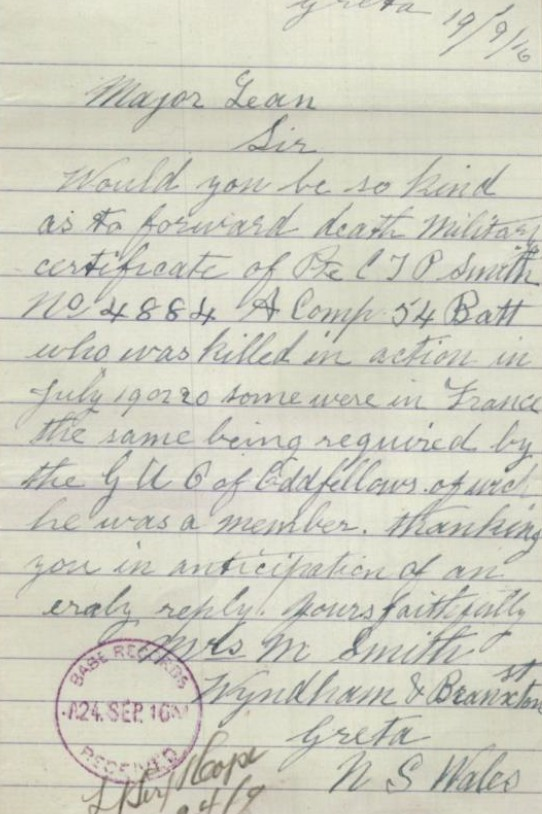 Greta 19/9/16
Major Lean
Sir
Would you be so kind
as to forward death Military
certificate of Pte C J P Smith
No 4884 A Comp 54 Batt
who was killed in action in
July 19 or 20 some were in France
the same being required by
the G U O of Oddfellows of wich
he was a member. thanking
you in anticipation of an
eraly reply. yours faithfully
Mrs M Smith
Wyndham & Branxton st
Greta
N S Wales
BASE RECORDS
24. SEP. 16
RECEIVED
24/9